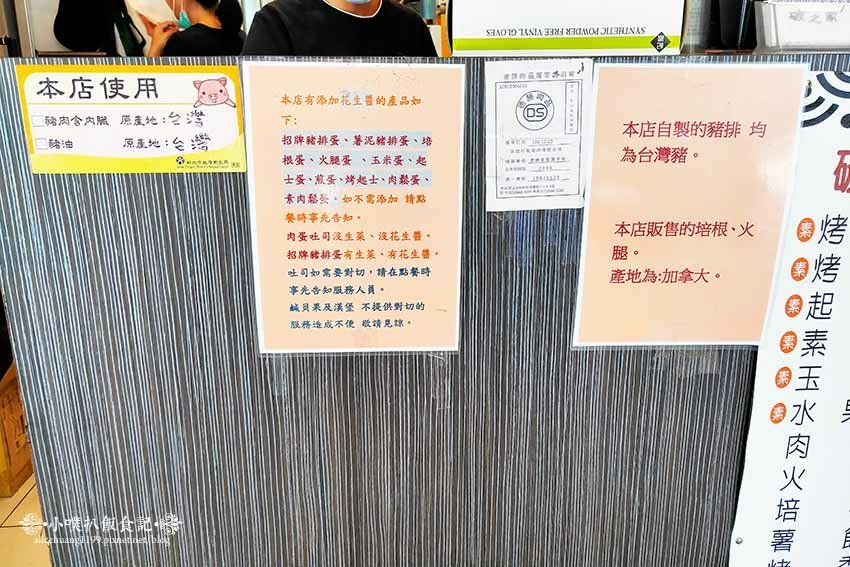 SYNTHETIC POWDER FREE VINYL GLOVES
本店使用
豬肉含內臟 原產地：台灣
豬油 原產地：台灣
本店有添加花生醬的產品如
下:
招牌豬排蛋、薯泥豬排蛋、培
根蛋、火腿蛋 、玉米蛋、起
士蛋、煎蛋、烤起士、肉鬆蛋、
素肉鬆蛋。如不需添加 請點
餐時事先告知。
肉蛋吐司沒生菜、沒花生醬。
招牌豬排蛋有生菜、有花生醬。
吐司如需要對切，請在點餐時
事先告知服務人員。
鹹貝果及漢堡 不提供對切的
服務造成不便 敬請見諒。
DS
本店自製的豬排 均
為台灣豬。
本店販售的培根、火
腿。
產地為:加拿大。
素 烤
素 烤
素 起
素 素
素 玉
素 水
肉
火
培
薯
烤
小噗扒飯食記
alicchuang1199.pixnet.net/blog